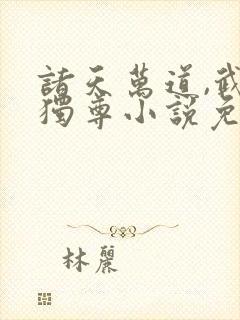 諸天萬道,武
獨尊小說免
林麗